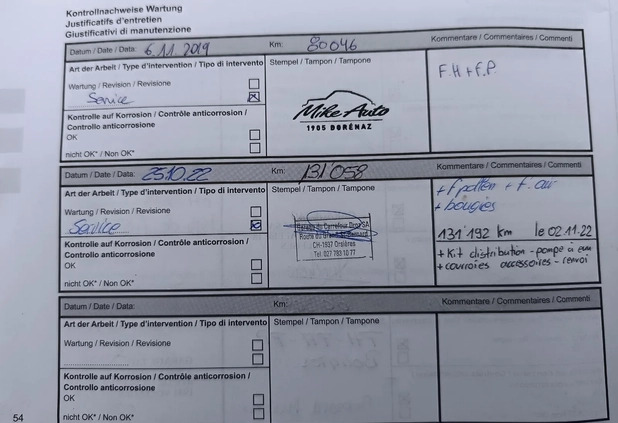 Kontrollnachweise Wartung
Justificatifs d'entretien
Giustificativi di manutenzione
Datum / Date / Data: 6.11.2019 Km: 80046 Kommentare / Commentaires / Commenti
Art der Arbeit / Type d'intervention / Tipo di intervento Stempel / Tampon / Tampone
Wartung / Revision / Revisione
Service
F.H + F.P.
Mike Auto
1905 DORÉNAZ
Kontrolle auf Korrosion / Contrôle anticorrosion /
Controllo anticorrosione
OK
nicht OK* / Non OK*
Datum / Date / Data: 25.10.22 Km: 131'058 Kommentare / Commentaires / Commenti
Art der Arbeit / Type d'intervention / Tipo di intervento Stempel / Tampon / Tampone
Wartung / Revision / Revisione
Service
+ F pollen + F. air
+ bougies
131'192 km le 02.11.22
+ Kit distribution - pompe à eau
+ courroies accessoires - renvoi
Garage du Carrefour
Route du Grand-St-Bernard
CH-1937 Orsières
Tel. 027 783 10 77
Kontrolle auf Korrosion / Contrôle anticorrosion /
Controllo anticorrosione
OK
nicht OK* / Non OK*
Datum / Date / Data: Km: Kommentare / Commentaires / Commenti
Art der Arbeit / Type d'intervention / Tipo di intervento Stempel / Tampon / Tampone
Wartung / Revision / Revisione
Kontrolle auf Korrosion / Contrôle anticorrosion /
Controllo anticorrosione
OK
nicht OK* / Non OK*
54